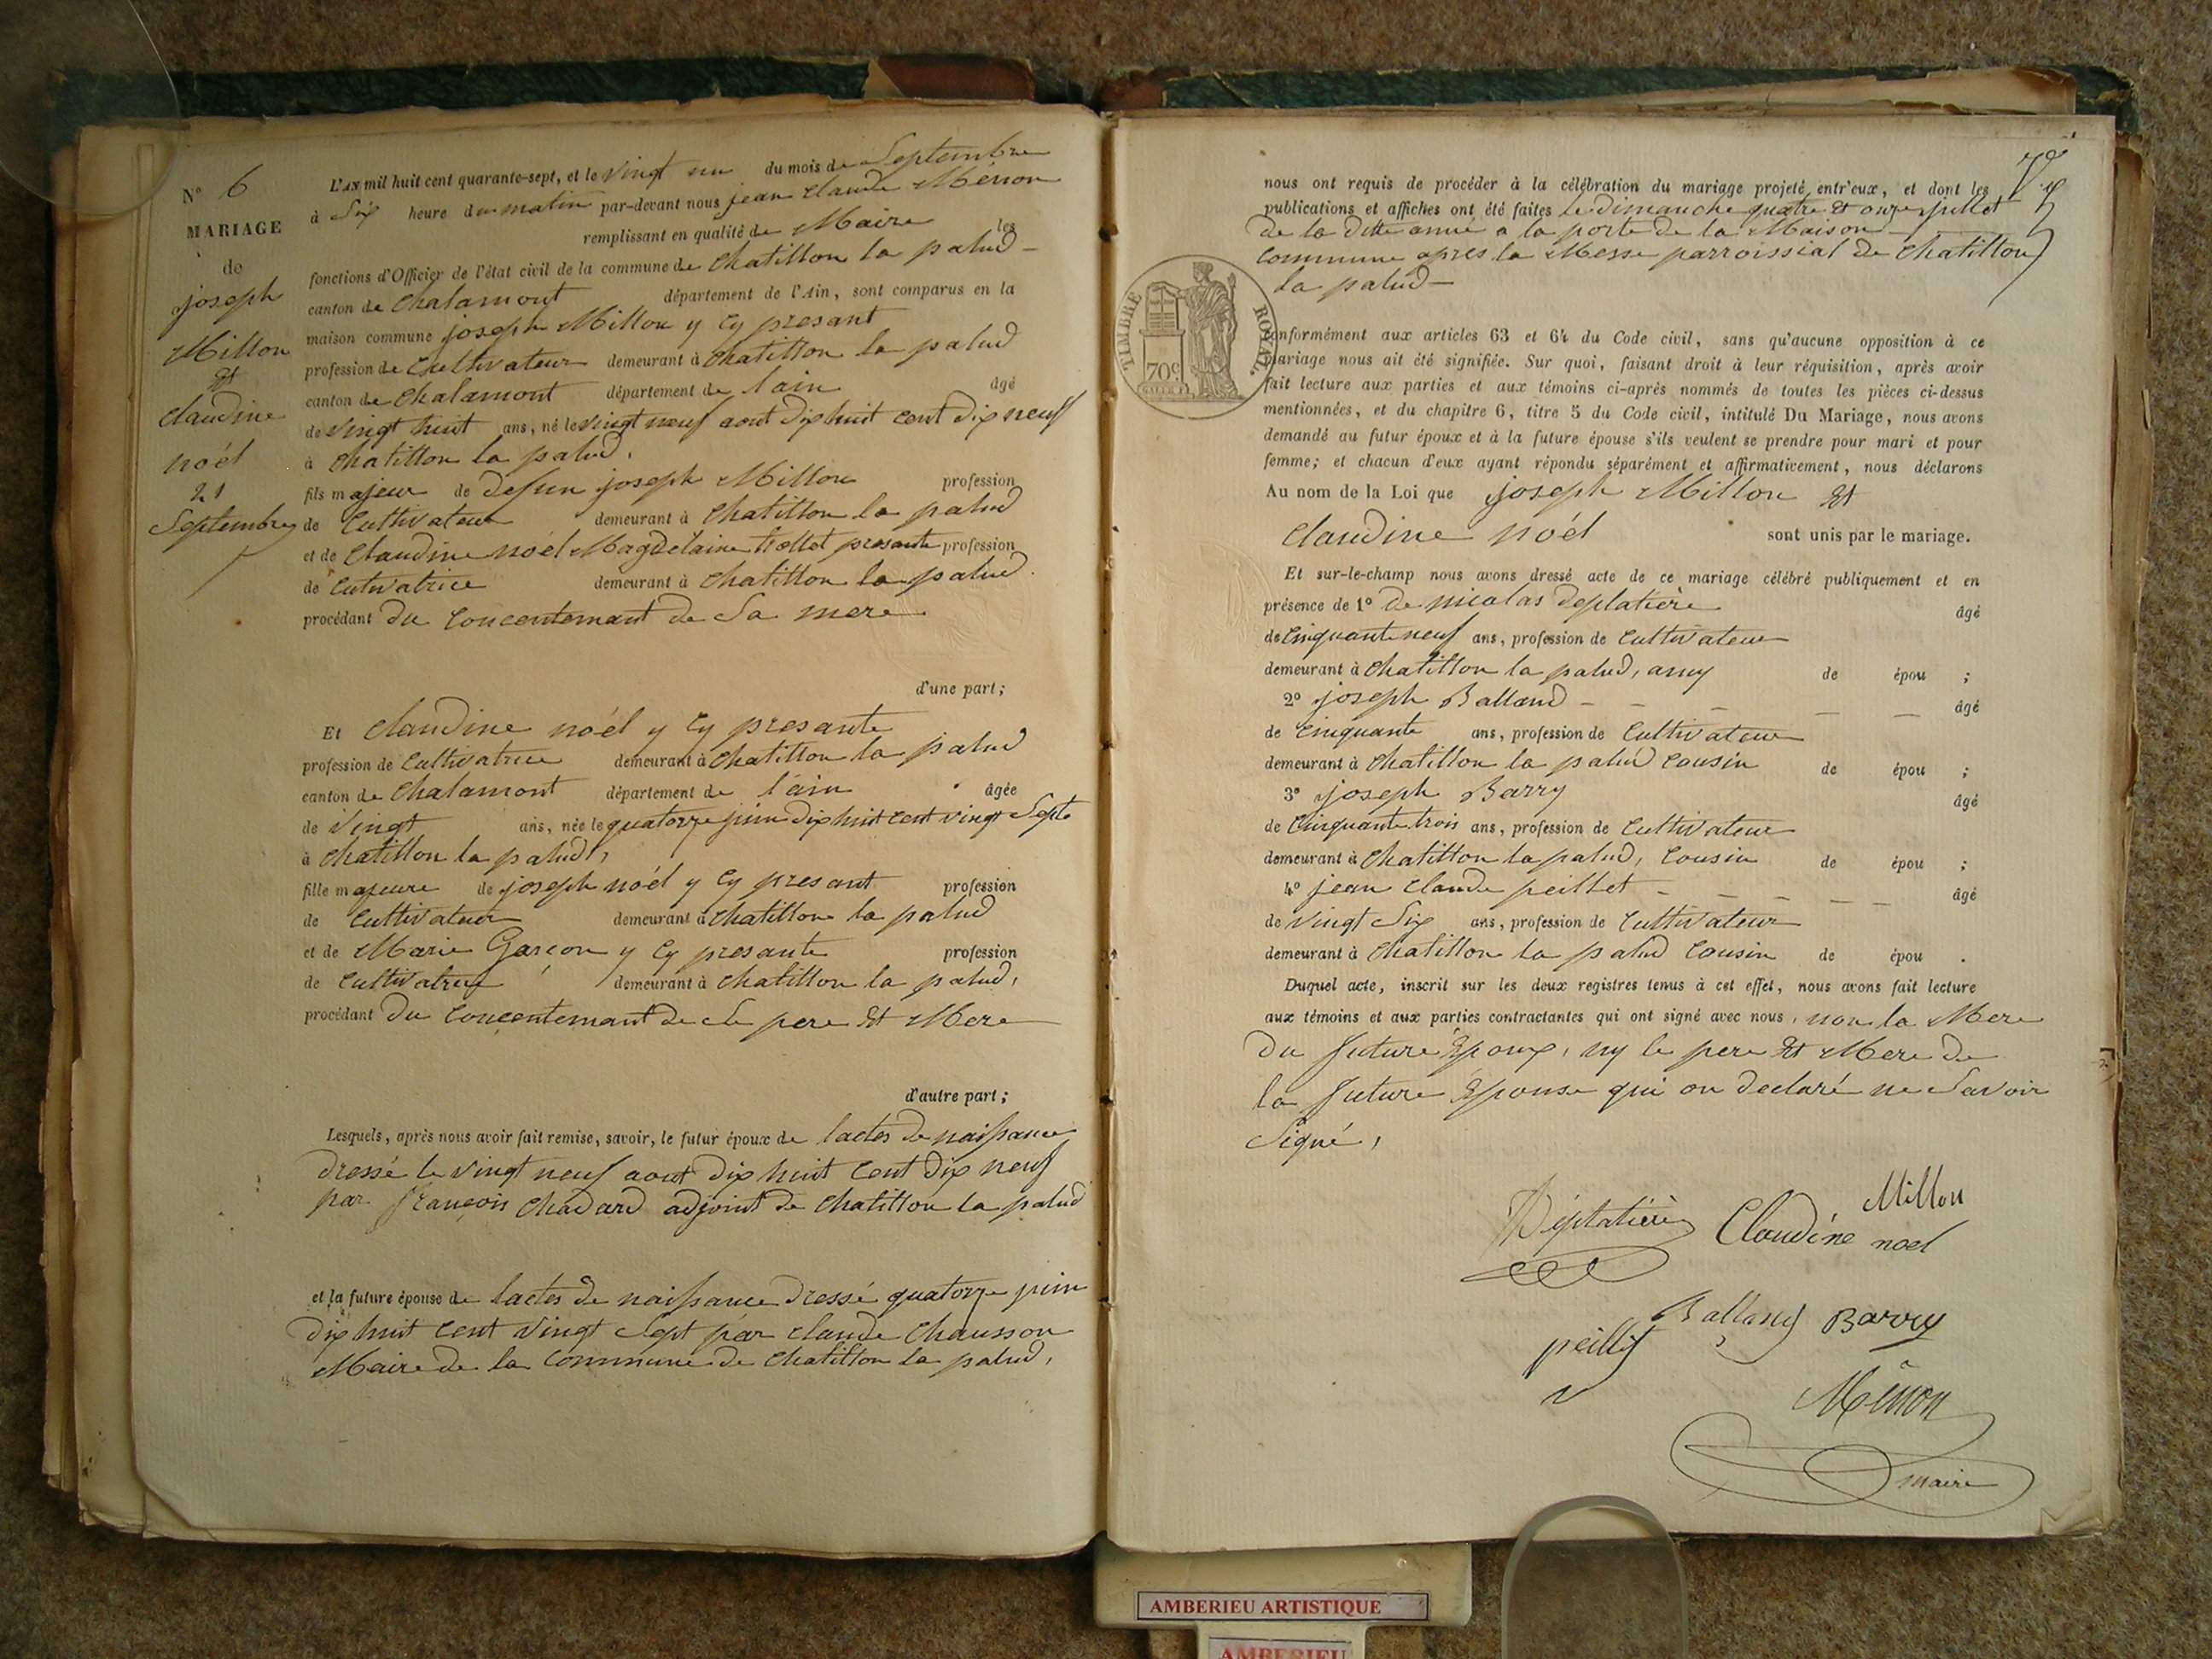 N° 6
MARIAGE
de
joseph
Millon
Et
claudine
noél
21
Septembre
L'AN mil huit cent quarante-sept, et le vingt un du mois de Septembre
à Six heure du matin par-devant nous jean claude Mérion
remplissant en qualité de Maire les
fonctions d'Officier de l'état civil de la commune de chatillon la palud —
canton de chalamont département de l'Ain, sont comparus en la
maison commune joseph Millon y Cy presant
profession de Cultivateur demeurant à chatillon la palud
canton de chalamont département de l'ain âgé
de vingt huit ans, né le vingt neuf aout dix huit cent dix neuf
à chatillon la palud,
fils majeur de defun joseph Millon profession
de Cultivateur demeurant à chatillon la palud
et de claudine noél Magdelaine presante profession
de Cutivatrice demeurant à chatillon la palud.
procédant du concentemant de Sa mere
d'une part;
Et claudine noél y Cy presante
profession de Cultivatrice demeurant à chatillon la palud
canton de chalamont département de l'ain âgée
de vingt ans, née le quatorze juin dix huit cent vingt Sept
à chatillon la palud,
fille majeure de joseph noél y Cy presant profession
de Cultivateur demeurant à chatillon la palud
et de Marie Garçon y Cy presante profession
de Cultivatrice demeurant à chatillon la palud,
procédant du concentemant de Se pere Et Mere
d'autre part;
Lesquels, après nous avoir fait remise, savoir, le futur époux de lactes de naissance
dressé le vingt neuf aout dix huit cent dix neuf
par françois chadard adjoint de chatillon la palud
et la future épouse de lactes de naissance dressé quatorze juin
dix huit cent vingt Sept par claude chausson
Maire de la commune de chatillon la palud,
nous ont requis de procéder à la célébration du mariage projeté entr'eux, et dont les
publications et affiches ont été faites le dimanche quatre Et onze juillet
de la ditte anné a la porte de la Maison
commune apres la Messe parroissial de chatillon
la palud —
TIMBRE ROYAL
70c
conformément aux articles 63 et 64 du Code civil, sans qu'aucune opposition à ce
mariage nous ait été signifiée. Sur quoi, faisant droit à leur réquisition, après avoir
fait lecture aux parties et aux témoins ci-après nommés de toutes les pièces ci-dessus
mentionnées, et du chapitre 6, titre 5 du Code civil, intitulé Du Mariage, nous avons
demandé au futur époux et à la future épouse s'ils veulent se prendre pour mari et pour
femme; et chacun d'eux ayant répondu séparément et affirmativement, nous déclarons
Au nom de la Loi que joseph Millon Et
claudine noél sont unis par le mariage.
Et sur-le-champ nous avons dressé acte de ce mariage célébré publiquement et en
présence de 1° De nicolas deplatière âgé
de Cinquante neuf ans, profession de Cultivateur
demeurant à chatillon la palud, amy de épou ;
2° joseph Balland — — — — — âgé
de Cinquante ans, profession de Cultivateur
demeurant à chatillon la palud Cousin de épou ;
3° joseph Barry âgé
de Cinquante trois ans, profession de Cultivateur
demeurant à chatillon la palud, Cousin de épou ;
4° jean claude peillet — — — — — âgé
de vingt Six ans, profession de Cultivateur
demeurant à chatillon la palud Cousin de épou .
Duquel acte, inscrit sur les deux registres tenus à cet effet, nous avons fait lecture
aux témoins et aux parties contractantes qui ont signé avec nous, non la Mere
du future Epoux, ny le pere Et Mere de
la future Epouse qui on declaré ne Savoir
Signé,
Millon
Déplatière Claudine noel
Balland Barry
peillet
Mérion
maire
AMBERIEU ARTISTIQUE
AMBERIEU